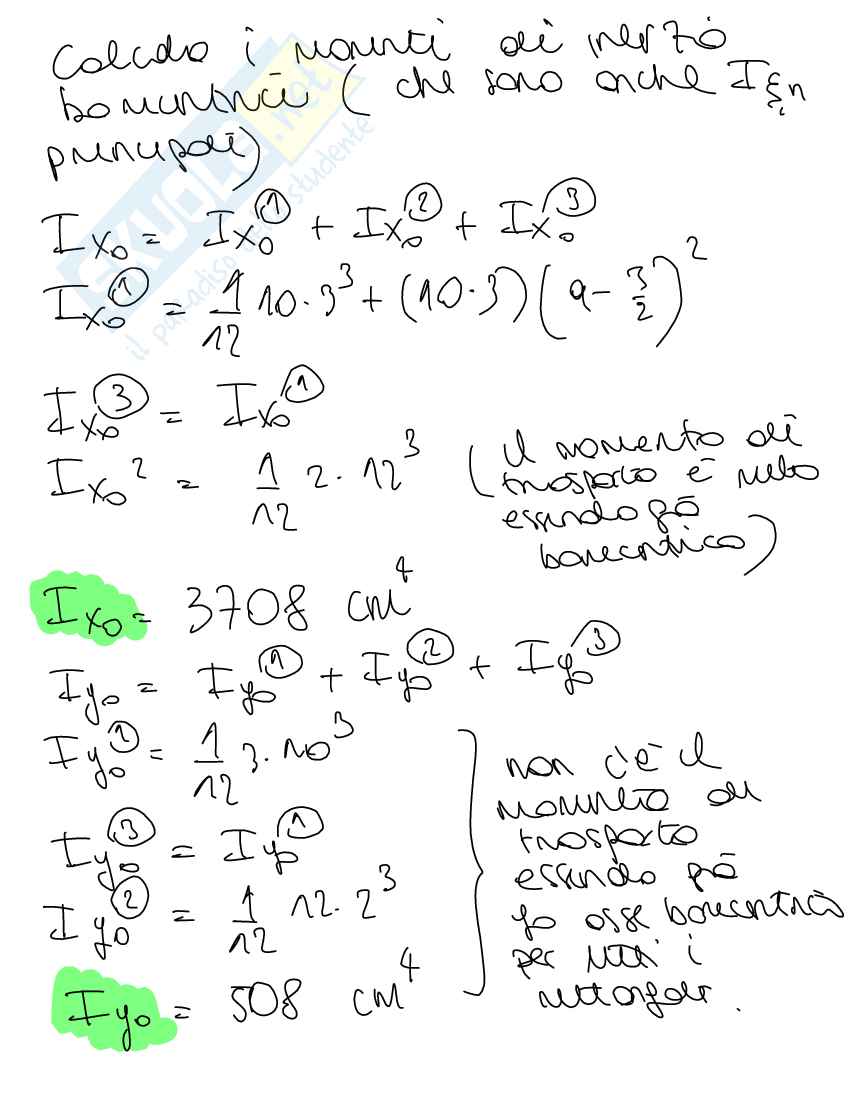 Calcolo i momenti di inerzia
baricentrici ( che sono anche I ξη
principali)
I x₀ = I x₀ ① + I x₀ ② + I x₀ ③
I x₀ ① = 1/12 10 · 3³ + (10 · 3) (9 - 3/2)²
I x₀ ③ = I x₀ ①
I x₀ ² = 1/12 2 · 12³ (il momento di
trasporto è nullo
essendo già
baricentrico)
I x₀ = 3708 cm⁴
I y₀ = I y₀ ① + I y₀ ② + I y₀ ③
I y₀ ① = 1/12 3 · 10³
I y₀ ③ = I y₀ ①
I y₀ ② = 1/12 12 · 2³
I y₀ = 508 cm⁴
non c'è il
momento di
trasporto
essendo già
y₀ asse baricentrico
per tutti i
rettangoli.
SKUOLA.net
il paradiso dello studente